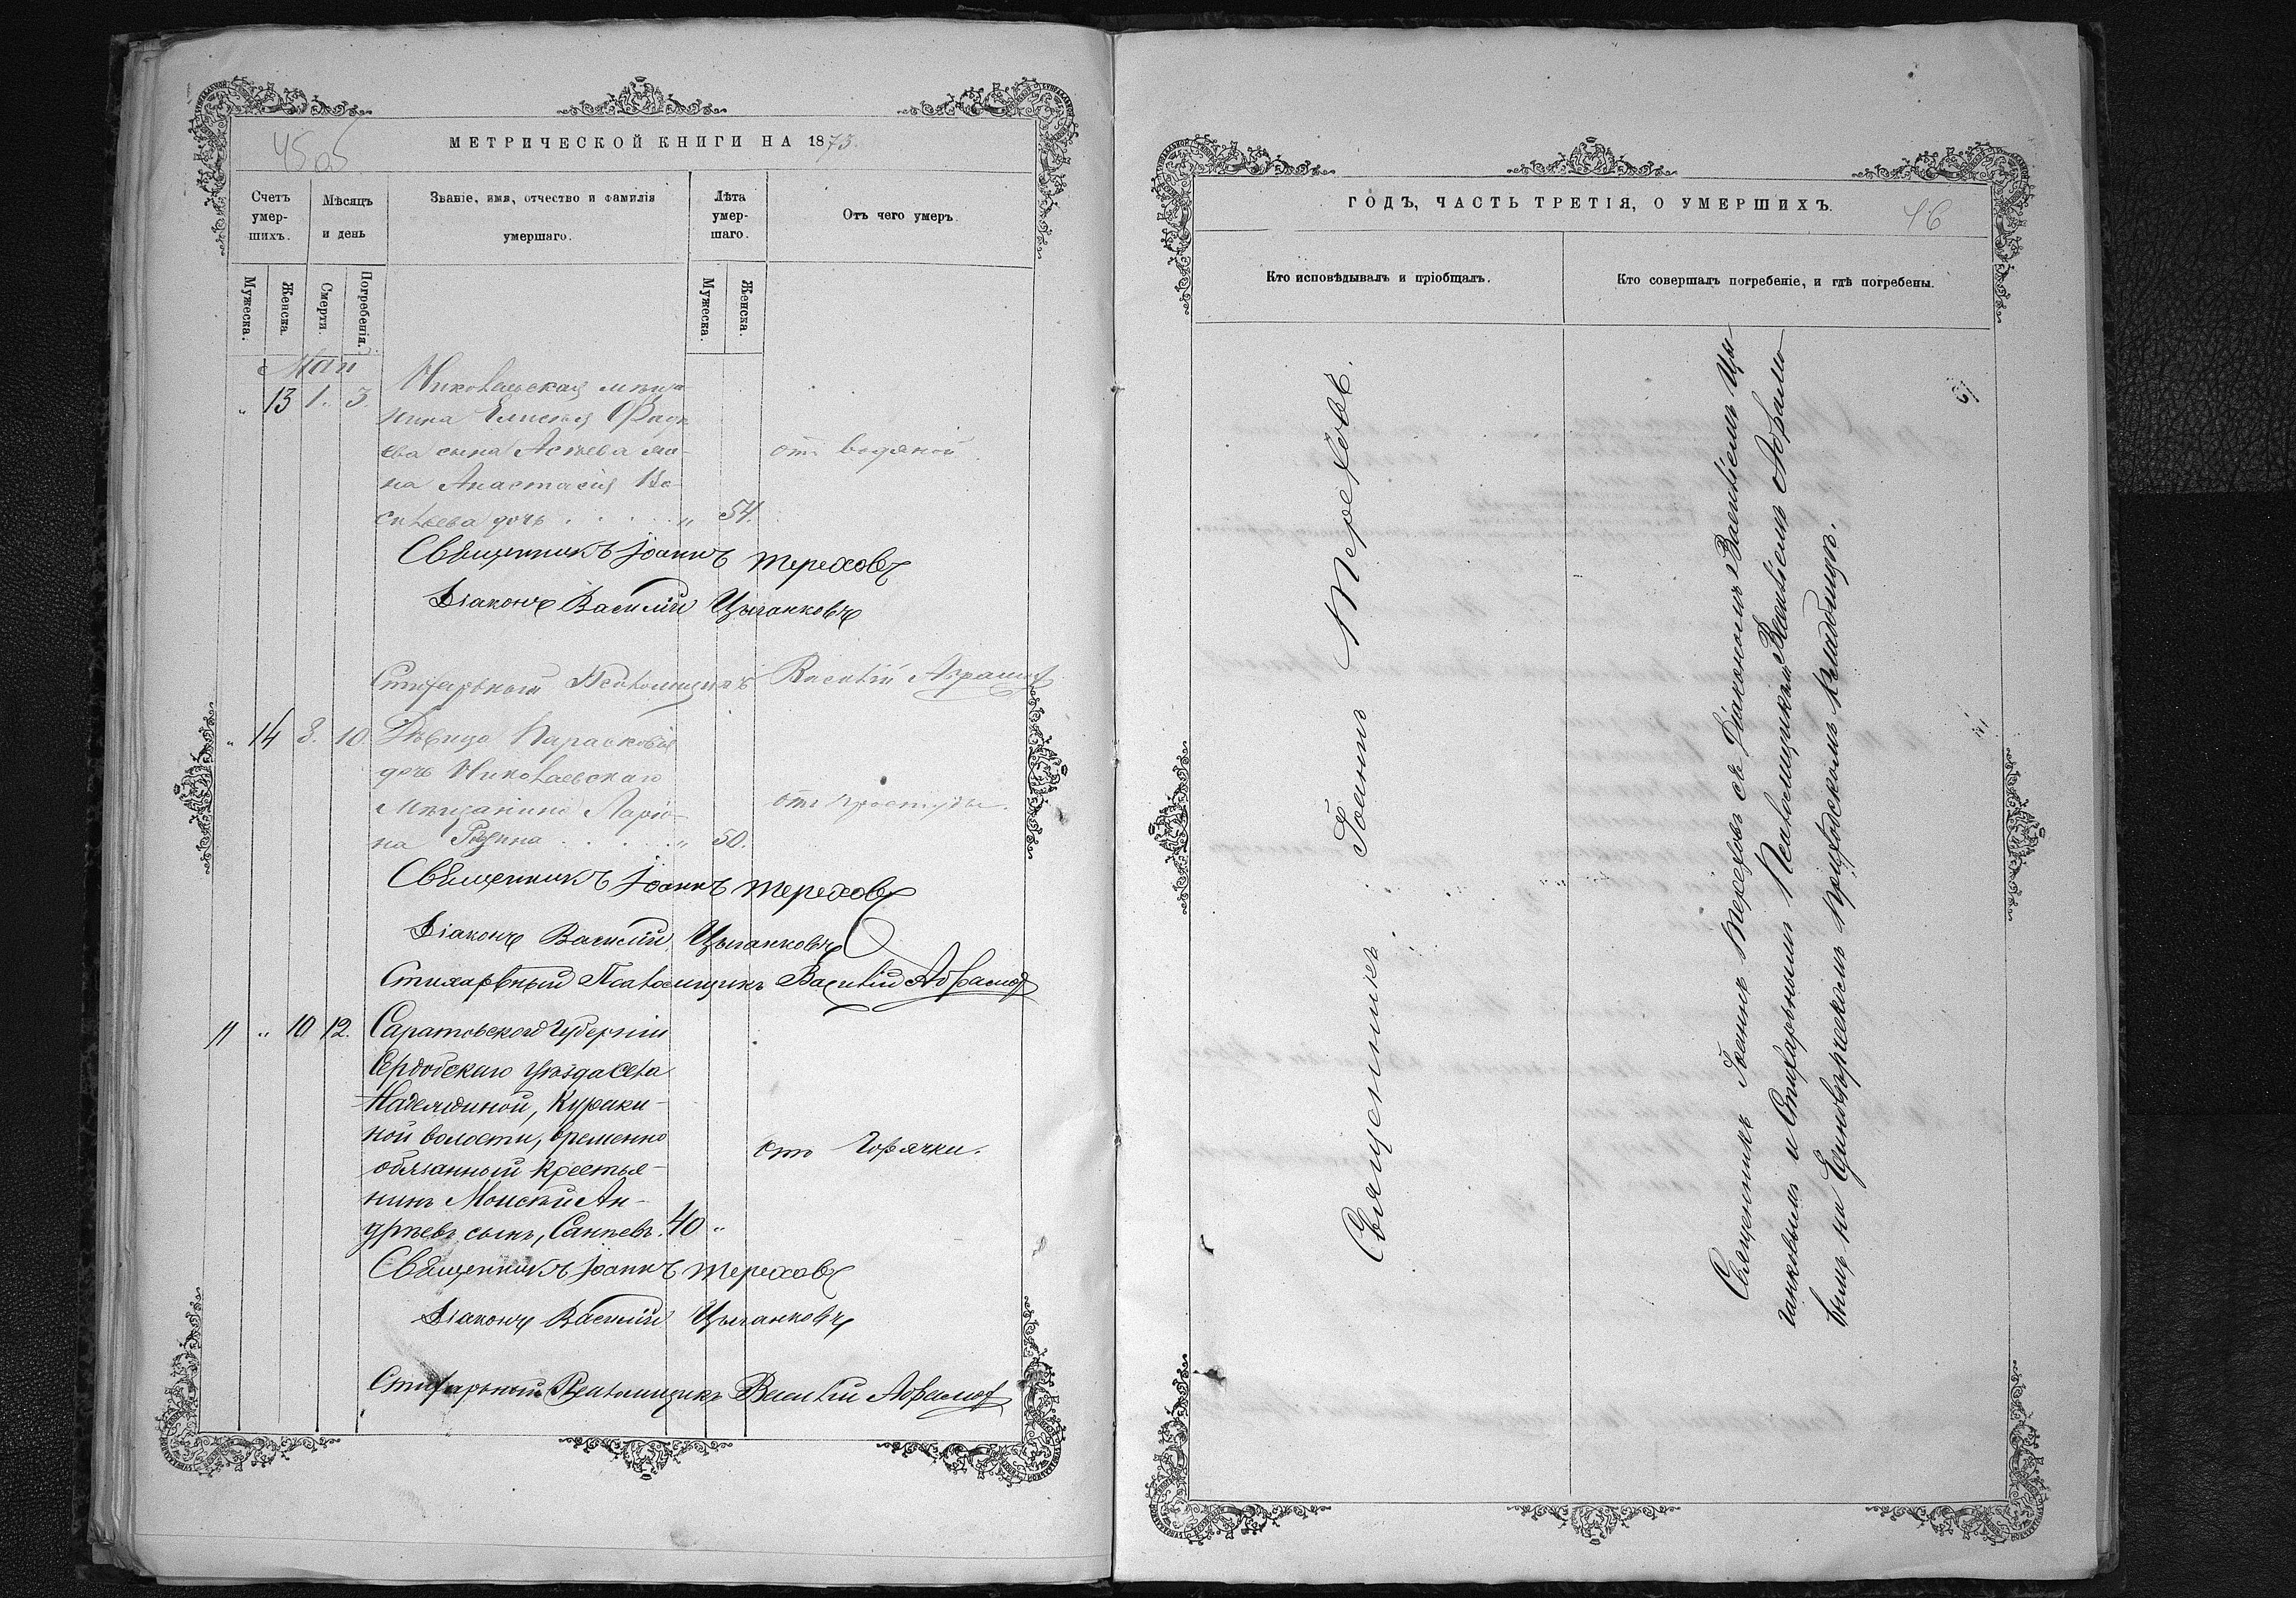 45 об
МЕТРИЧЕСКОЙ КНИГИ НА 1875.
Счетъ умер-шихъ.
Мѣсяцъ и день
Званіе, имя, отчество и фамилія умершаго.
Лѣта умер-шаго.
Отъ чего умеръ.
Мужеска. Женска. Смерти. Погребенія. Мужеска. Женска.
Маій
" 13 1. 3. Николаевская мѣща-
нина Елисея Фадѣ-
ева сына Асѣева же-
на Анастасія Ва-
сильева дочь . . . . " 54.
отъ водяной
Священникъ Іоаннъ Тереховъ
Діаконъ Василій Цыганковъ
Стихарный Псаломщикъ Василій Абрамовъ
" 14 8. 10. Дѣвица Парасковія
дочь Николаевскаго
Мѣщанина Ларіо-
на . . . . " 50.
отъ простуды.
Священникъ Іоаннъ Тереховъ
Діаконъ Василій Цыганковъ
Стихарный Псаломщикъ Василій Абрамовъ
11 " 10 12. Саратовской Губерніи
Сердобскаго уѣзда села
Надеждиной, Кураки-
ной волости, временно
обязанный крестья-
нинъ Моисей Ан-
дрѣевъ сынъ, 40 "
отъ Горячки.
Священникъ Іоаннъ Тереховъ
Діаконъ Василій Цыганковъ
Стихарный Псаломщикъ Василій Абрамовъ
ГОДЪ, ЧАСТЬ ТРЕТІЯ, О УМЕРШИХЪ.
46
Кто исповѣдывалъ и пріобщалъ.
Кто совершалъ погребеніе, и гдѣ погребены.
Священникъ Іоаннъ Тереховъ.
Священникъ Іоаннъ Тереховъ съ Діакономъ Василіемъ Цы-
ганковымъ и Стихарнымъ Псаломщикомъ Василіемъ Абрамо-
вымъ на Единовѣрческомъ приходскомъ кладбищѣ.